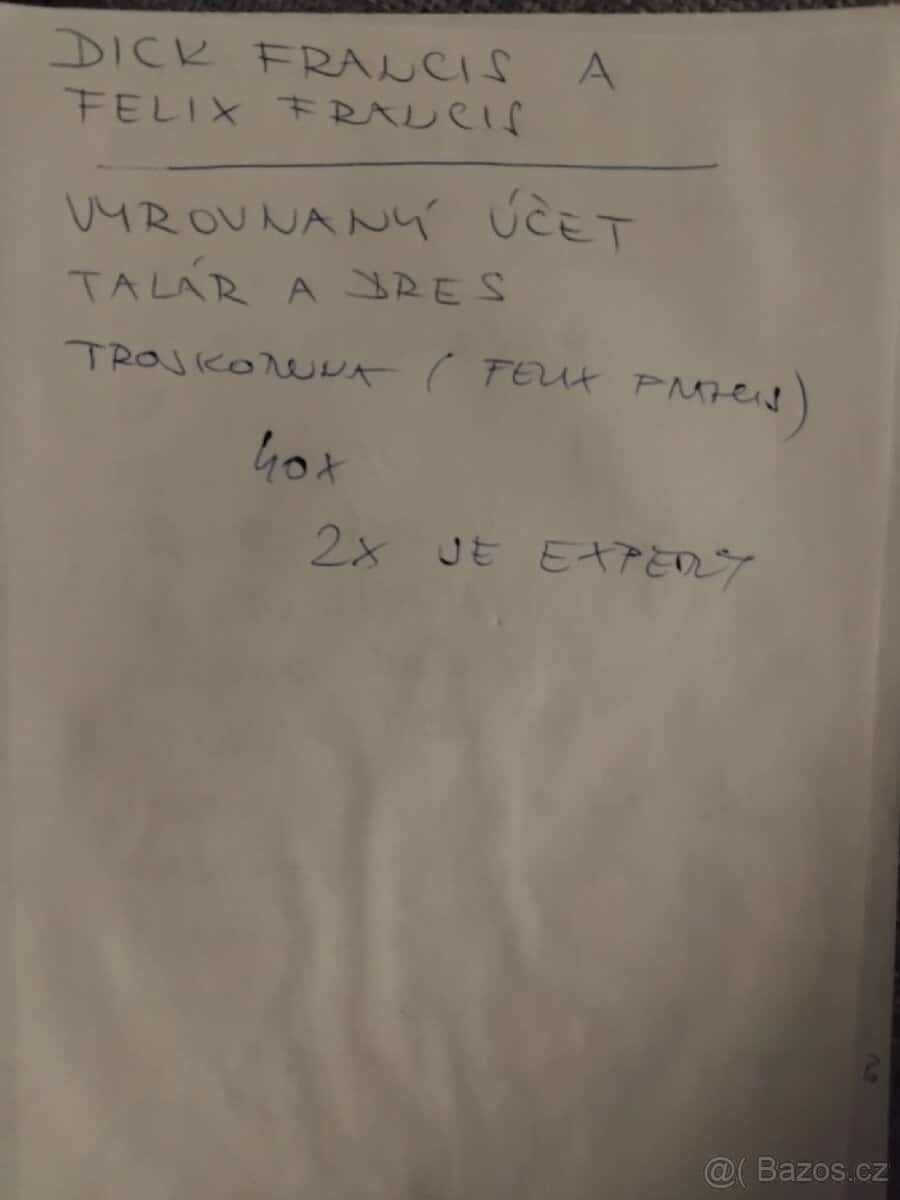 DICK FRANCIS A
FELIX FRANCIS
VYROVNANÝ ÚČET
TALÁR A DRES
TROJKORUNA ( FELIX FRANCIS)
40X
2X JE EXPERTI
2
@( Bazos.cz